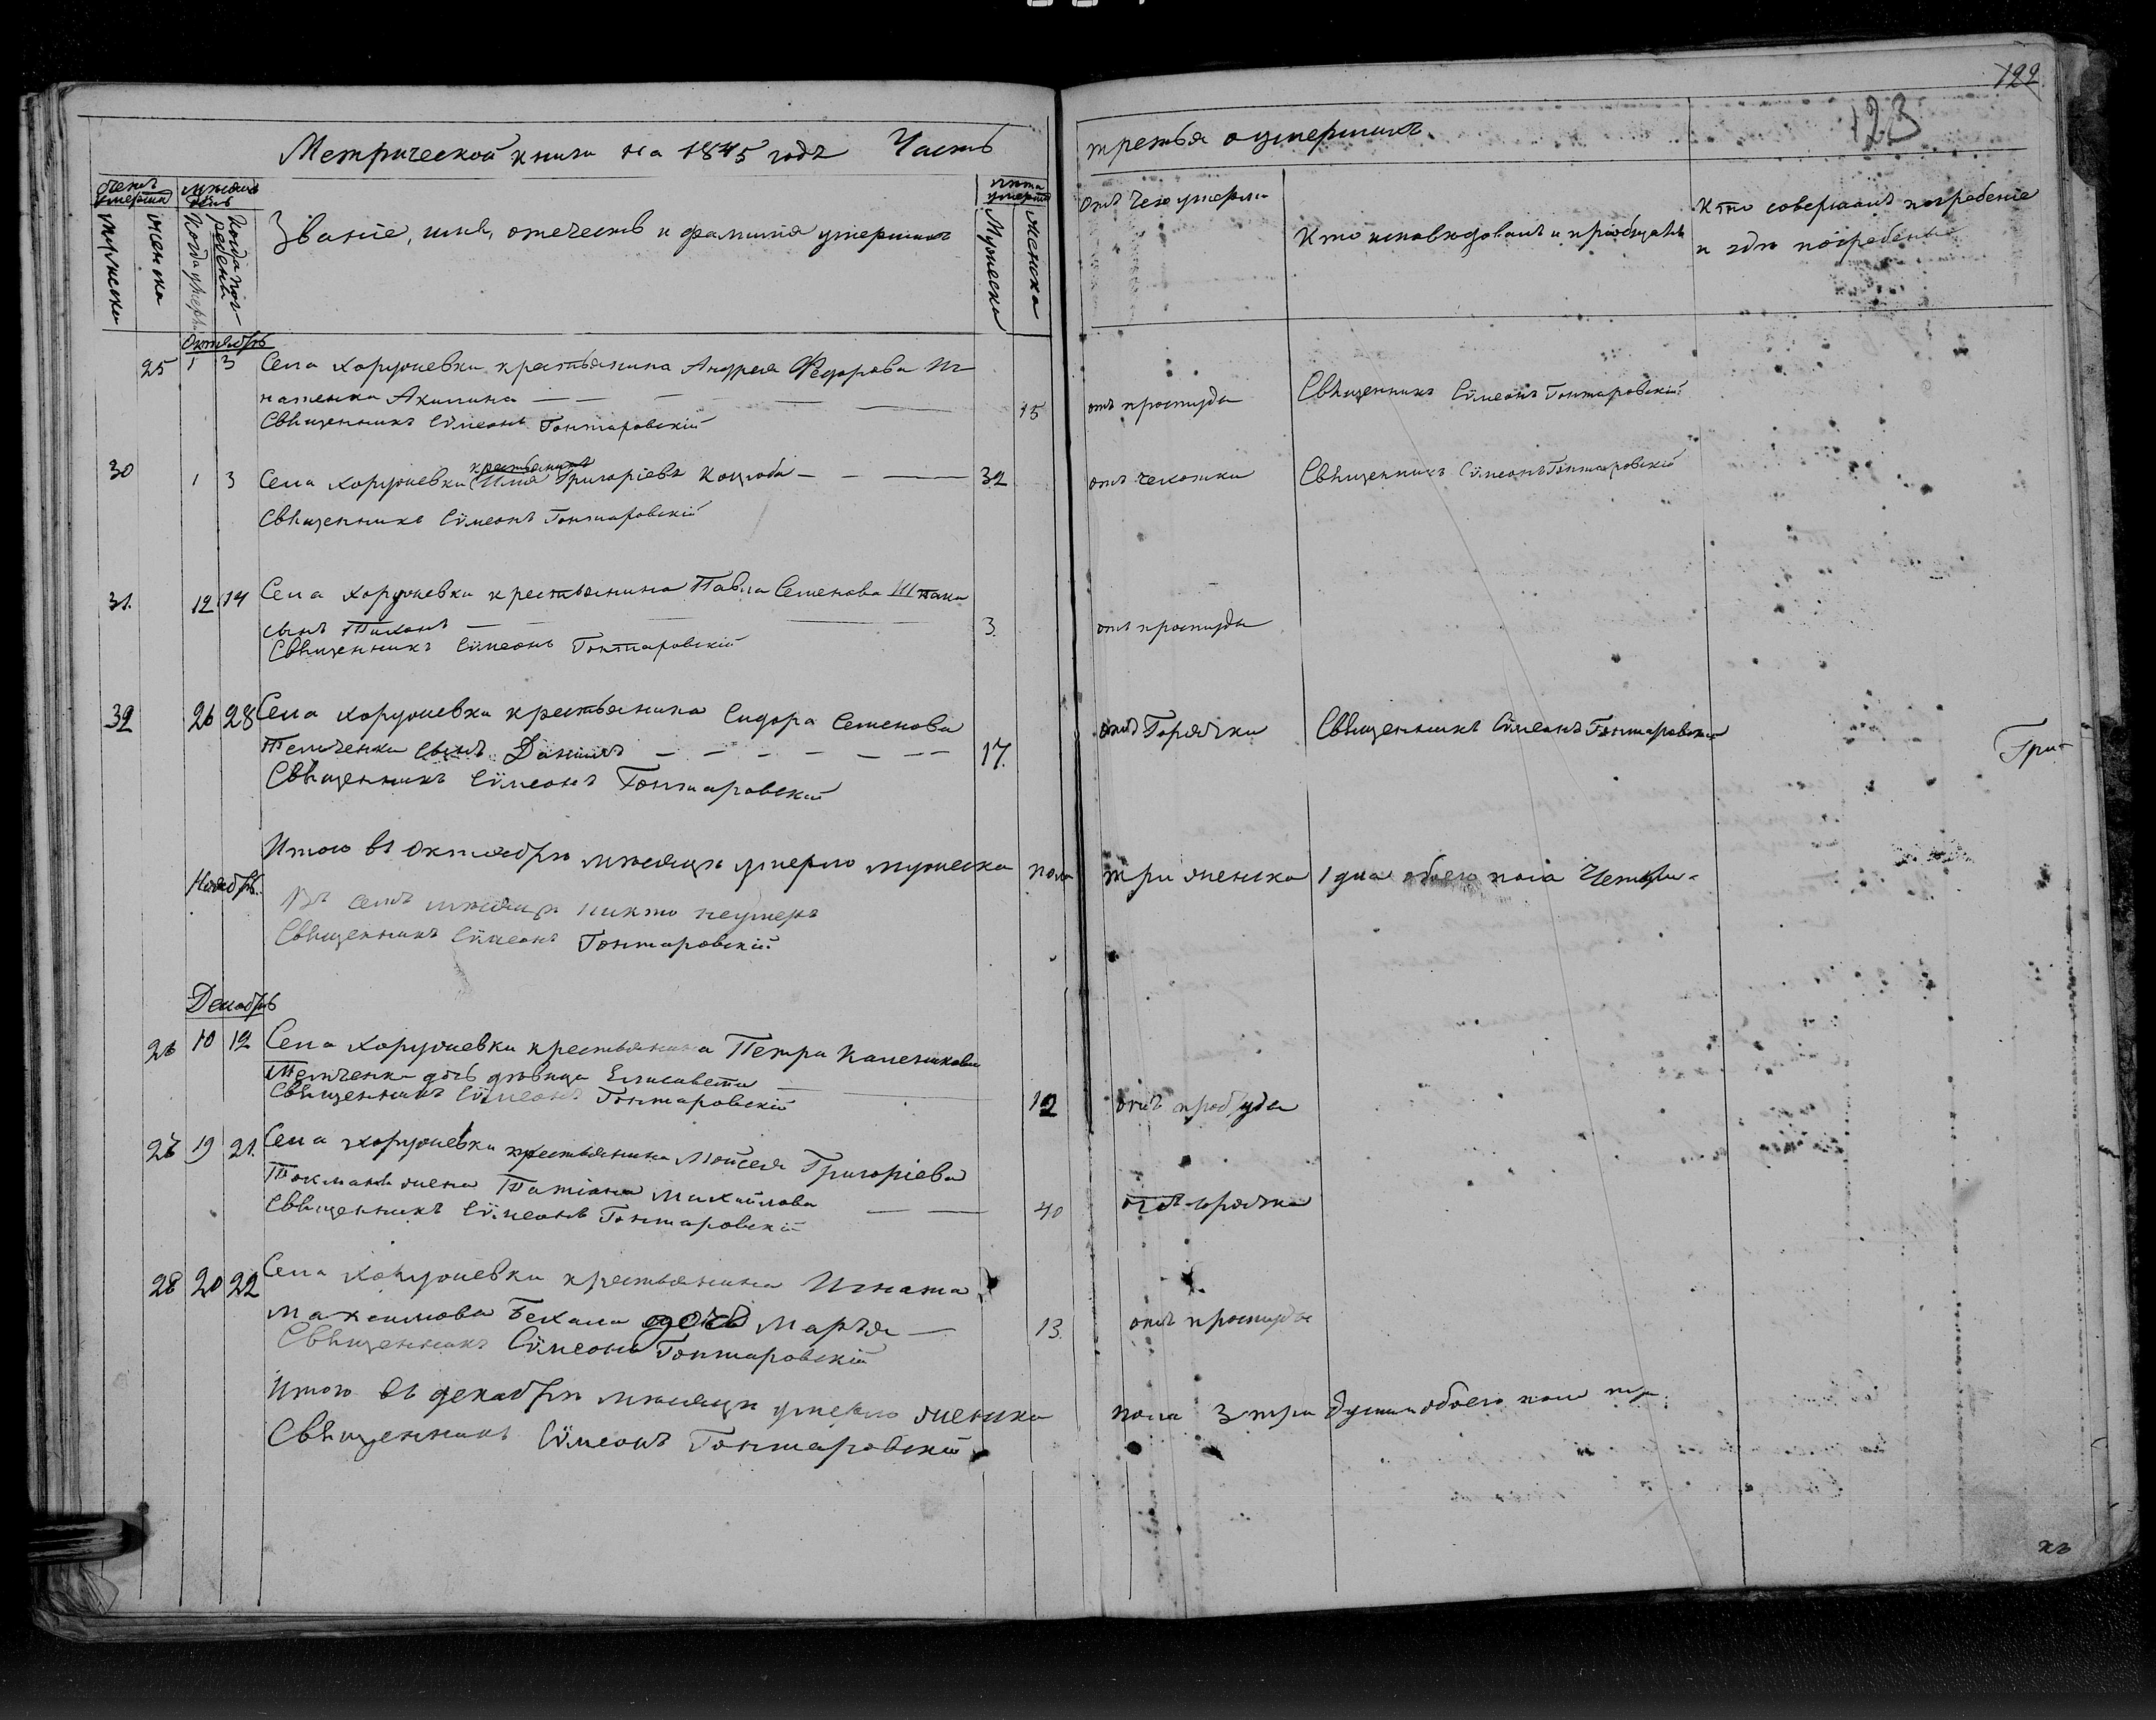 122
123
Метрической книги на 1845 годъ Часть третья о умершихъ
счетъ умершихъ
мѣсяцъ день
лѣта умершихъ
Мужеска
женска
Когда умеръ
Когда погребенъ
Званіе, имя, отечество и фамилія умершихъ
Мужеска
женска
Отъ чего умерли
Кто исповѣдовалъ и пріобщалъ
Кто совершалъ погребеніе
и гдѣ погребены
Октябрь
25 1 3 Села Хоружевки крестьянина Андрея Федорова Иг
натенка Акилина 15 отъ простуды Священникъ Сѵмеонъ Гонтаровскій
Священникъ Сѵмеонъ Гонтаровскій
крестьянинъ
30 1 3 Села Хоружевки Илья Григоріевъ Коцюба 32 отъ чахотки Священникъ Сѵмеонъ Гонтаровскій
Священникъ Сѵмеонъ Гонтаровскій
31. 12 14 Села Хоружевки крестьянина Павла Семенова
сынъ Тихонъ 3. отъ простуды
Священникъ Сѵмеонъ Гонтаровскій
32 26 28 Села Хоружевки крестьянина Сидора Семенова
Темченка сынъ Даніилъ 17. отъ Горячки Священникъ Сѵмеонъ Гонтаровскій
Священникъ Сѵмеонъ Гонтаровскій
Гри
Итого въ Октябрѣ мѣсяцѣ умерло мужеска пола три женска 1 дна обоего пола Четыри
Ноябрь.
Въ семъ мѣсяцѣ никто неумеръ
Священникъ Сѵмеонъ Гонтаровскій
Декабрь
26 10 12 Села Хоружевки крестьянина Петра Каленикова
Темченка дочь дѣвица Елисавета
Священникъ Сѵмеонъ Гонтаровскій 12 отъ простуды
27 19 21. Села Хоружевки крестьянина Моисея Григоріева
жена Татіана Михайлова
Священникъ Сѵмеонъ Гонтаровскій 40 отъ горячки
28 20 22 Села Хоружевки крестьянина Игната
Максимова дочь Марья 13. отъ простуды
Священникъ Сѵмеонъ Гонтаровскій
Итого въ декабрѣ мѣсяцѣ умерло женска пола 3 три души обоего пола три
Священникъ Сѵмеонъ Гонтаровскій
къ